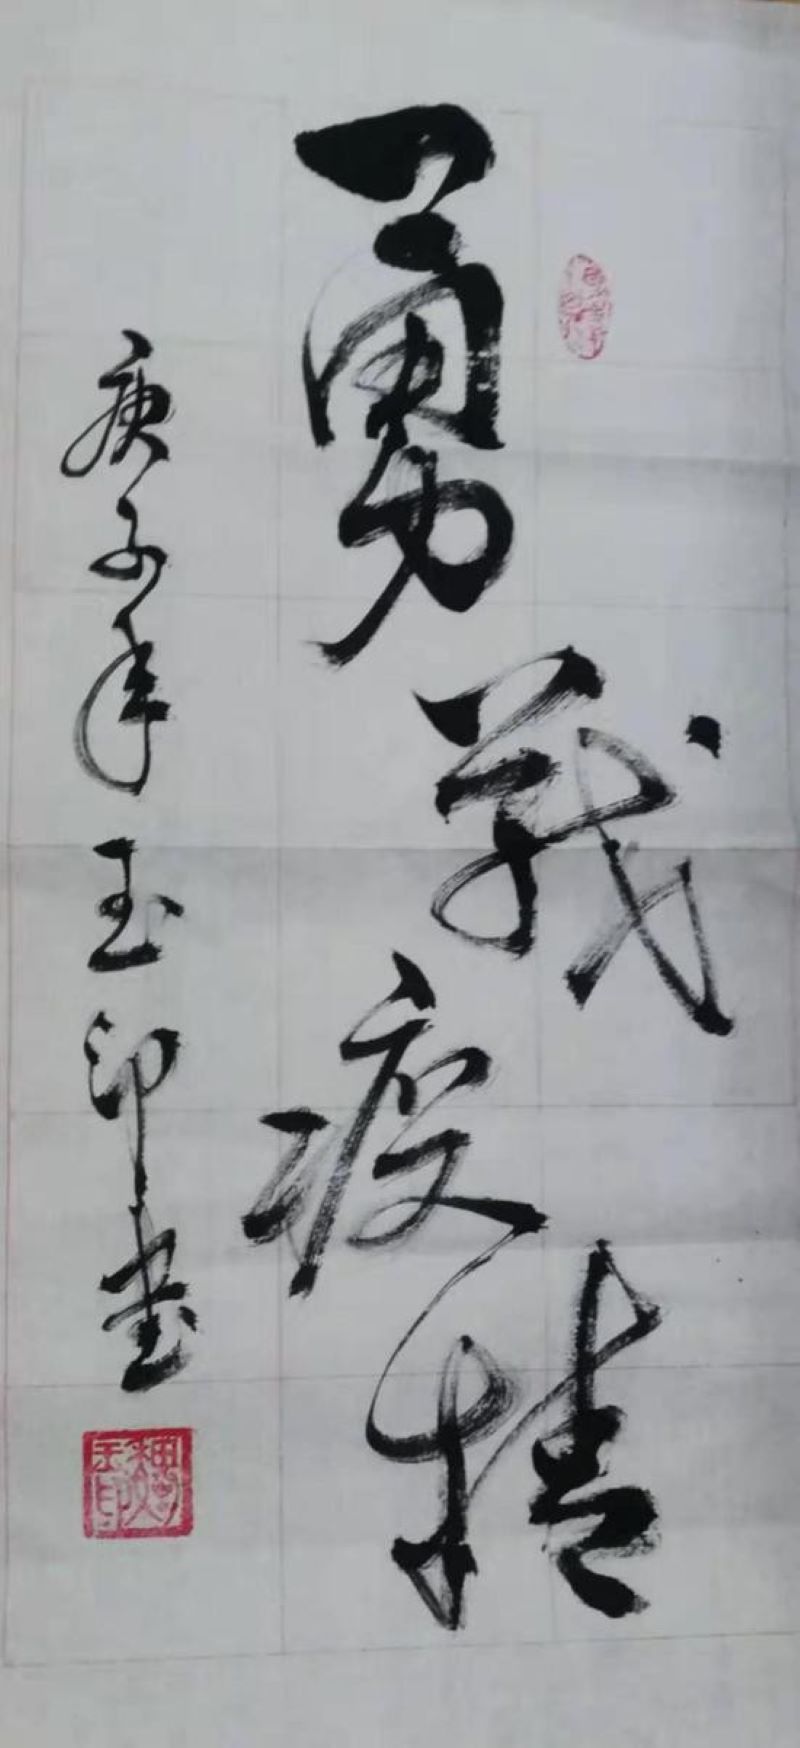 勇战疫情
庚子年玉印书